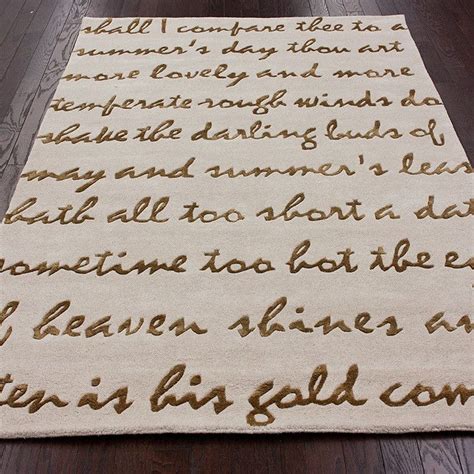 shall I compare thee to a
summer's day thou art
more lovely and more
temperate rough winds do
shake the darling buds of
may and summer's leas
hath all too short a dat
sometime too hot the e
f heaven shines a
ten is his gold com